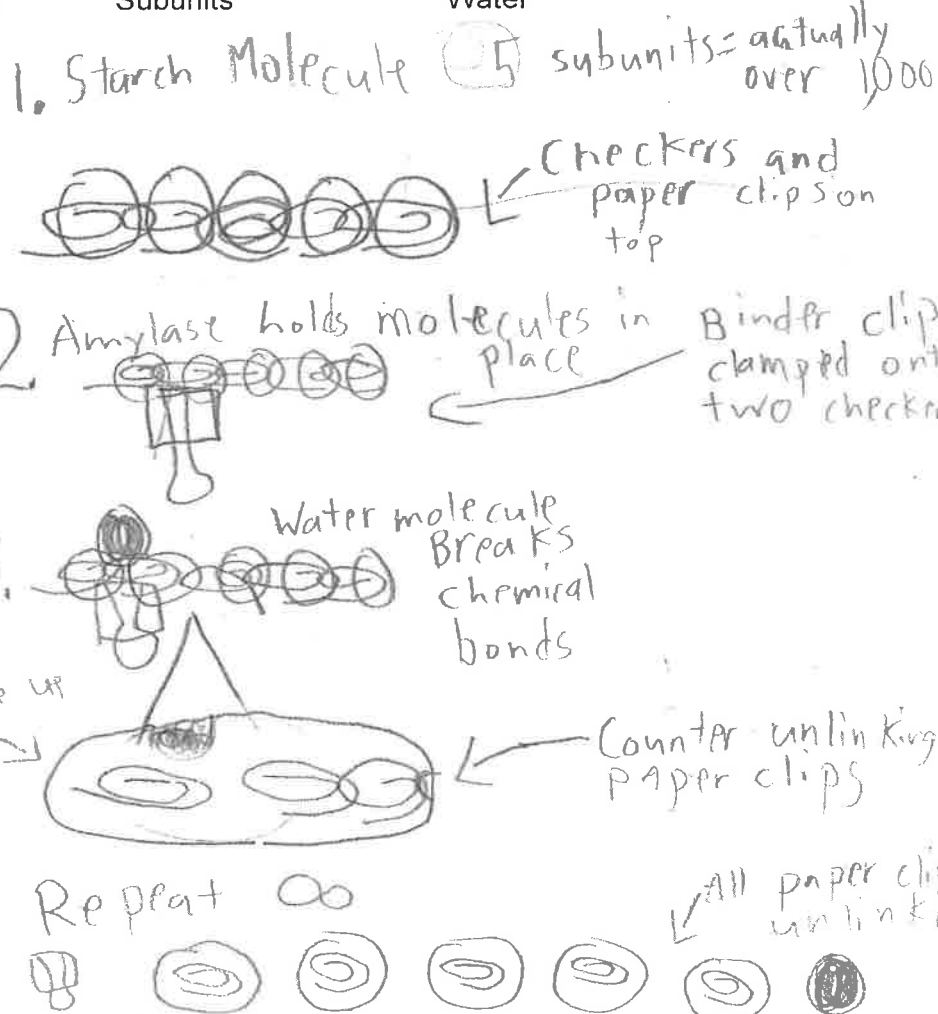 Subunits Water
1. Starch Molecule 5 subunits= actually
over 1,000
Checkers and
paper clips on
top
2. Amylase holds molecules in
place
Binder clip
clamped ont
two checke
Water molecule
Breaks
chemical
bonds
up
Counter unlinking
paper clips
Repeat ∞
All paper cli
unlink